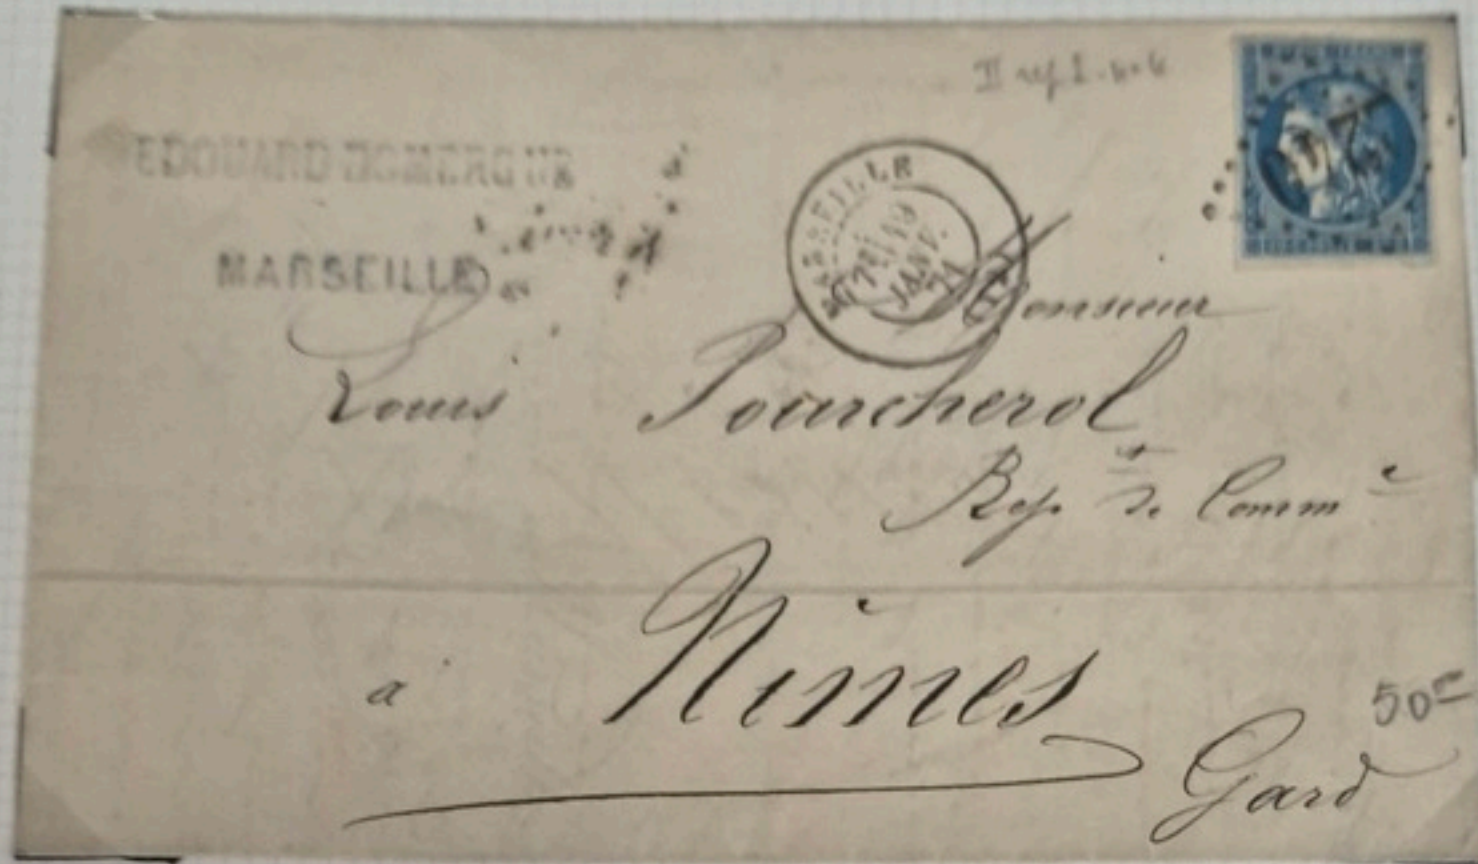 EDOUARD DOMERGUE
MARSEILLE
MARSEILLE
7E 19
JANV.
71
Monsieur
Louis Pourcherol
Rep.t de Comm.e
à Nîmes
Gard
50